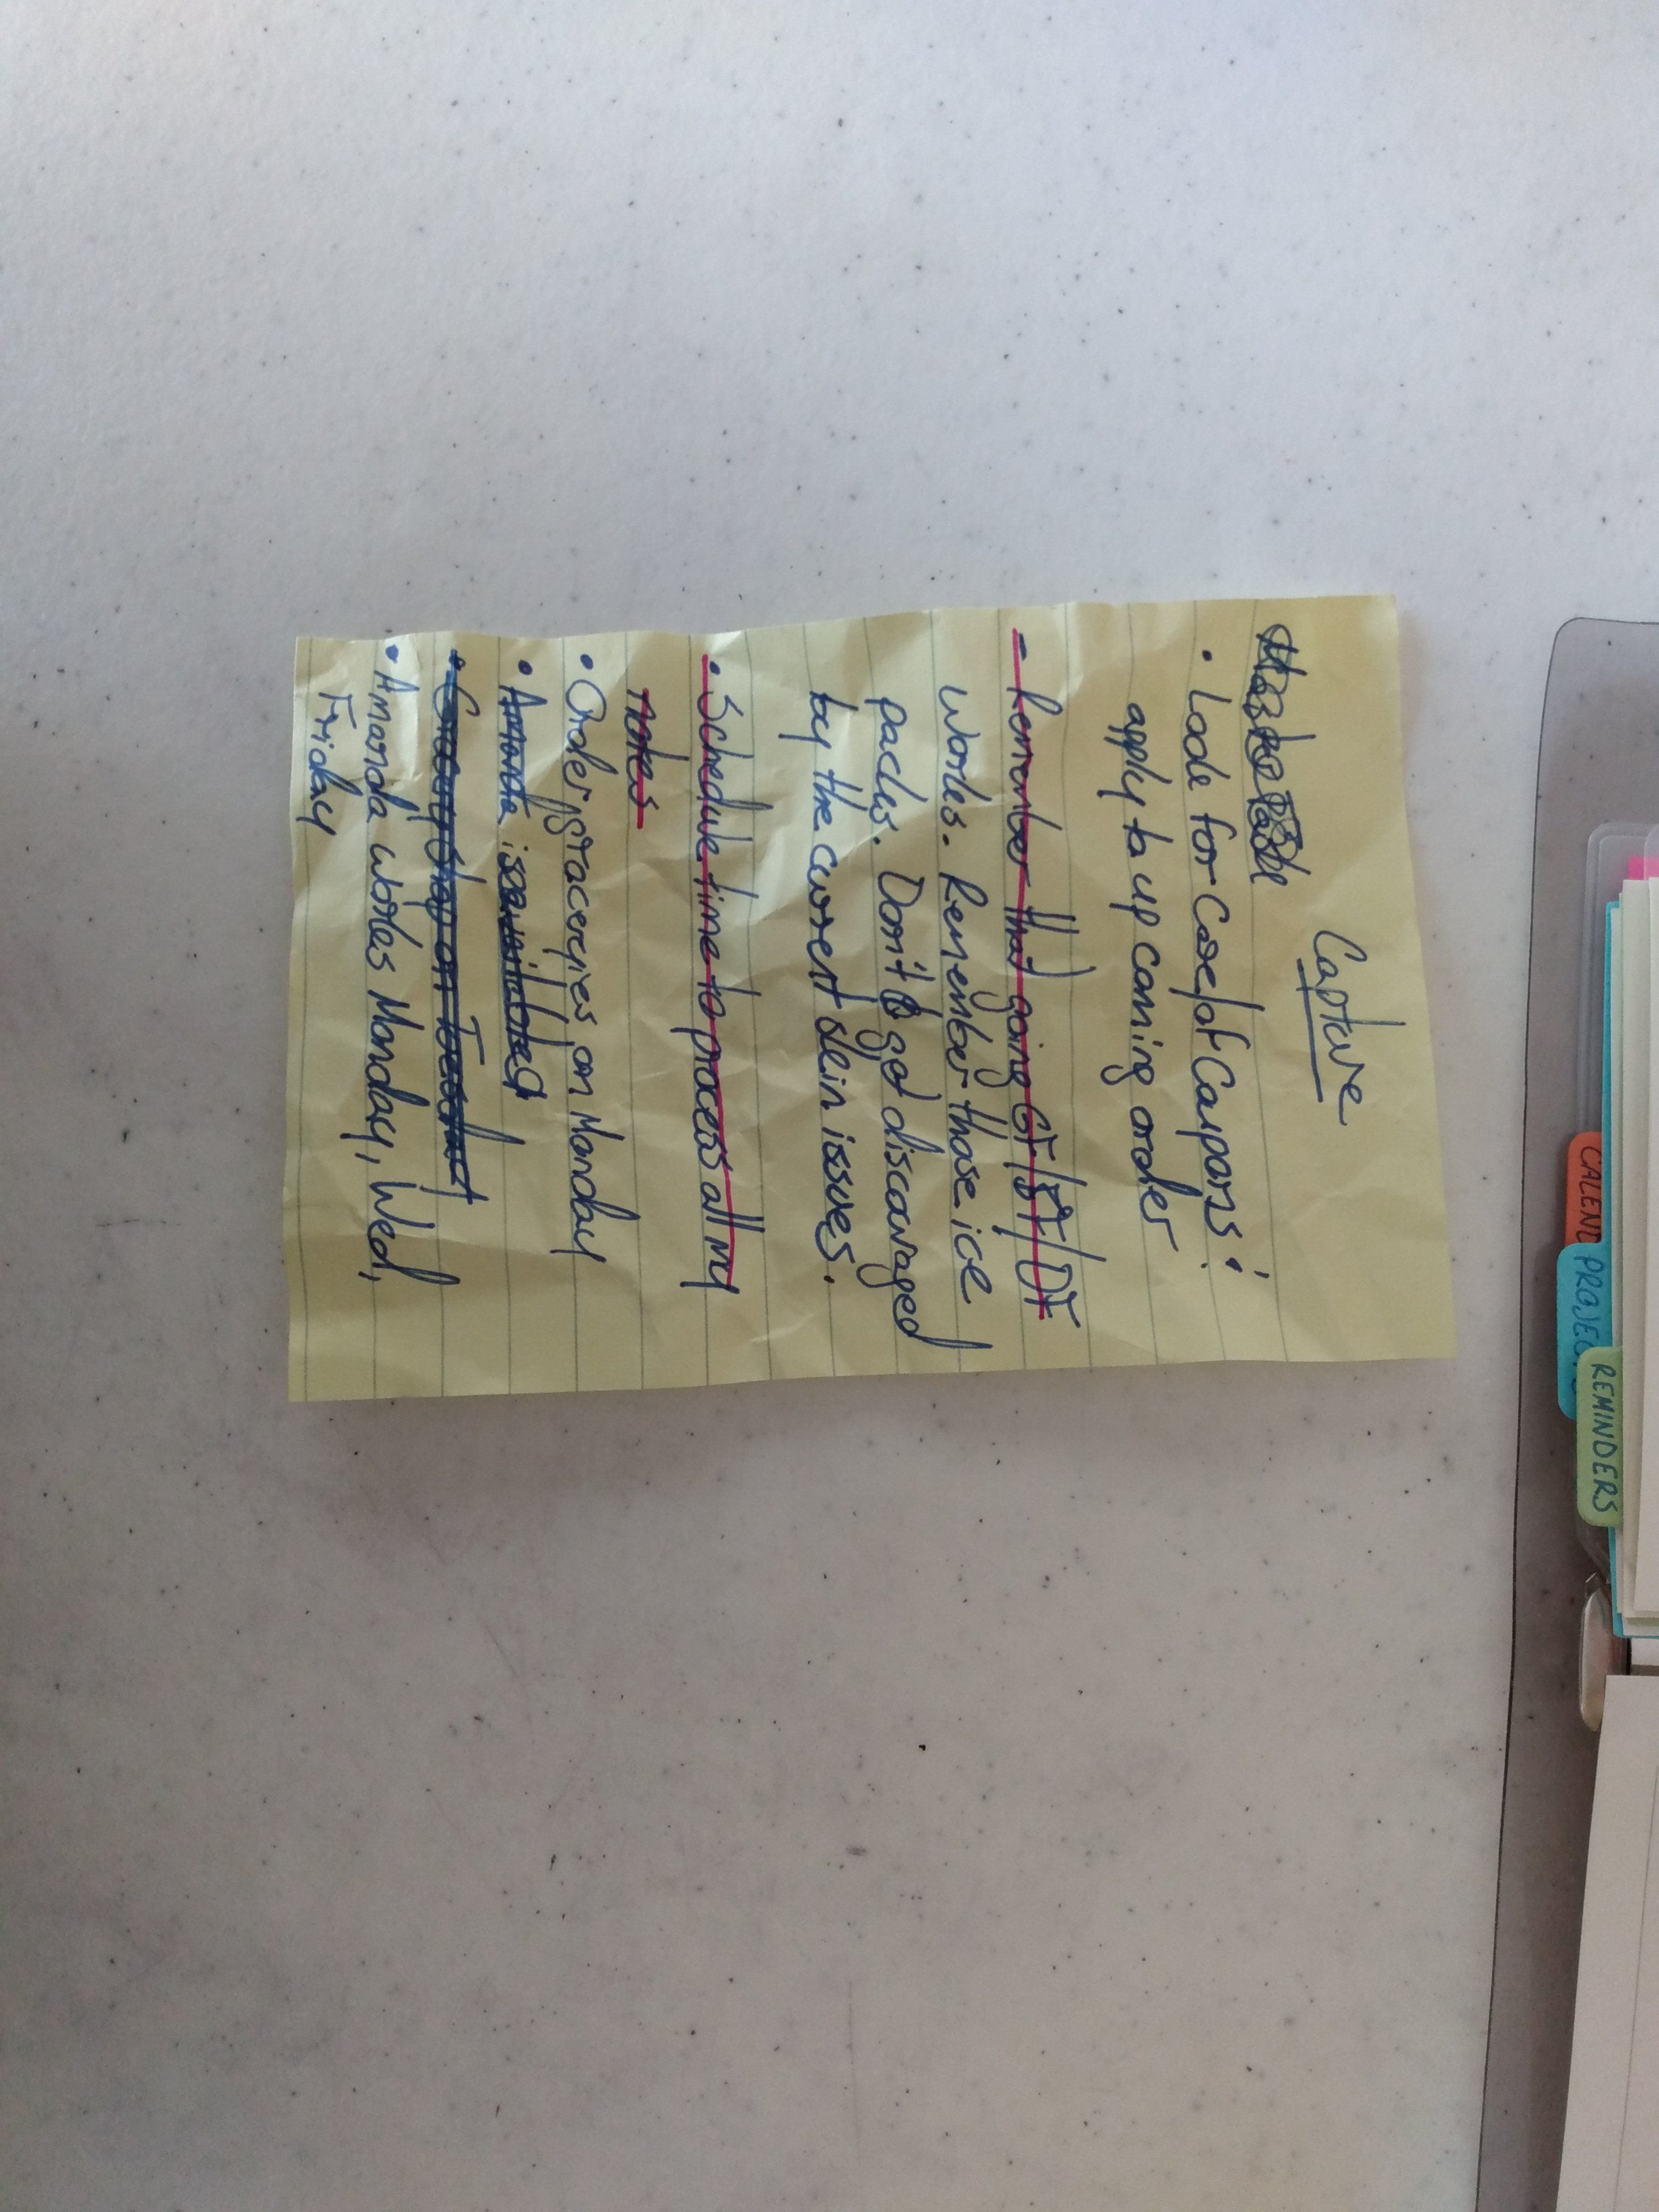 Capture
• Look for Casefot Coupons &
apply to up coming order
- Remember that going GF/SF/DF
works. Remember those ice
packs. Don't get discouraged
by the current skin issues.
• Schedule time to process all my
notes
• Order graceries on Monday
• Amanda is
• Grocery Shop on
• Amanda works Monday, Wed,
Friday
CALEND
PROJEC
REMINDERS